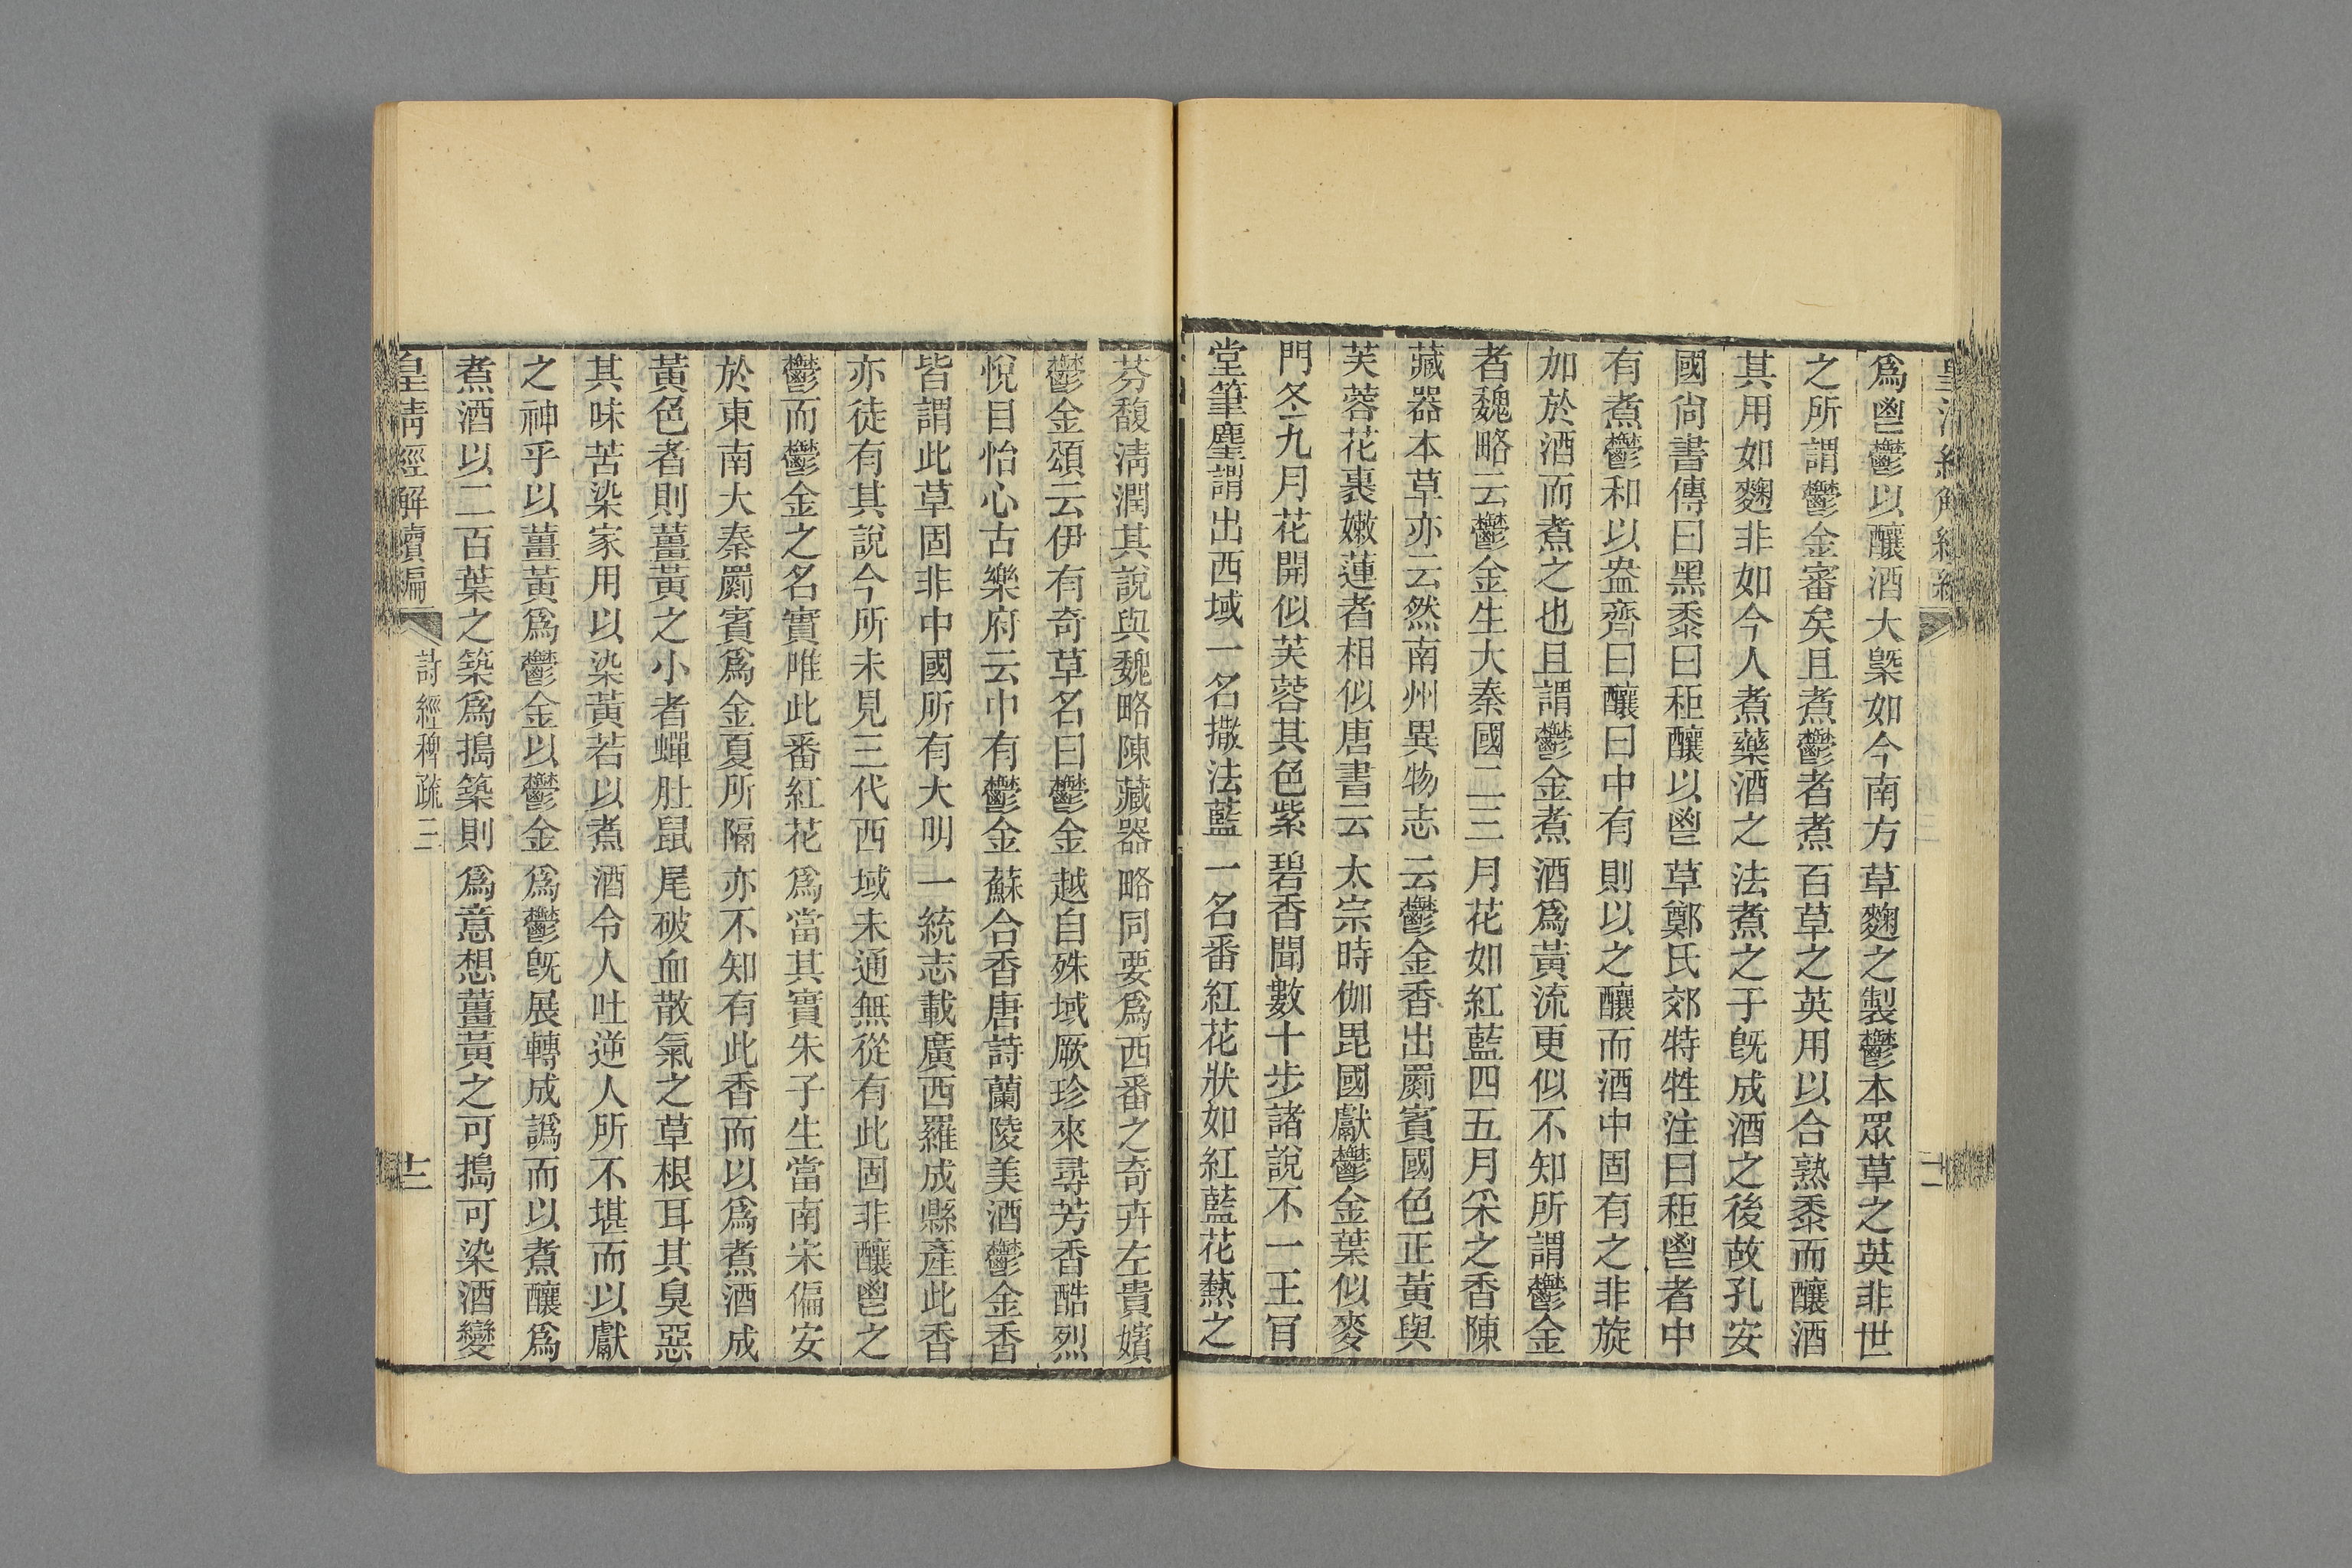 爲鬯鬱以釀酒大槩如今南方草麴之製鬱本眾草之英非世
之所謂鬱金審矣且煮鬱者煮百草之英用以合熟黍而釀酒
其用如麴非如今人煮藥酒之法煮之于旣成酒之後故孔安
國尙書傳曰黑黍曰秬釀以鬯草鄭氏郊特牲注曰秬鬯者中
有煮鬱和以盎齊曰釀曰中有則以之釀而酒中固有之非旋
加於酒而煮之也且謂鬱金煮酒爲黃流更似不知所謂鬱金
者魏略云鬱金生大秦國二三月花如紅藍四五月采之香陳
藏器本草亦云然南州異物志云鬱金香出罽賓國色正黃與
芙蓉花裹嫩蓮者相似唐書云太宗時伽毘國獻鬱金葉似麥
門冬九月花開似芙蓉其色紫碧香聞數十步諸說不一王肎
堂筆塵謂出西域一名撒法藍一名番紅花狀如紅藍花爇之
芬馥淸潤其說與魏略陳藏器略同要爲西番之奇卉左貴嬪
鬱金頌云伊有奇草名曰鬱金越自殊域厥珍來尋芳香酷烈
悅目怡心古樂府云中有鬱金蘇合香唐詩蘭陵美酒鬱金香
皆謂此草固非中國所有大明一統志載廣西羅成縣產此香
亦徒有其說今所未見三代西域未通無從有此固非釀鬯之
鬱而鬱金之名實唯此番紅花爲當其實朱子生當南宋偏安
於東南大秦罽賓爲金夏所隔亦不知有此香而以爲煮酒成
黃色者則薑黃之小者蟬肚鼠尾破血散氣之草根耳其臭惡
其味苦染家用以染黃若以煮酒令人吐逆人所不堪而以獻
之神乎以薑黃爲鬱金以鬱金爲鬱旣展轉成譌而以煮釀爲
煮酒以二百葉之築爲搗築則爲意想薑黃之可搗可染酒變
皇淸經解續編
詩經稗疏三
十二